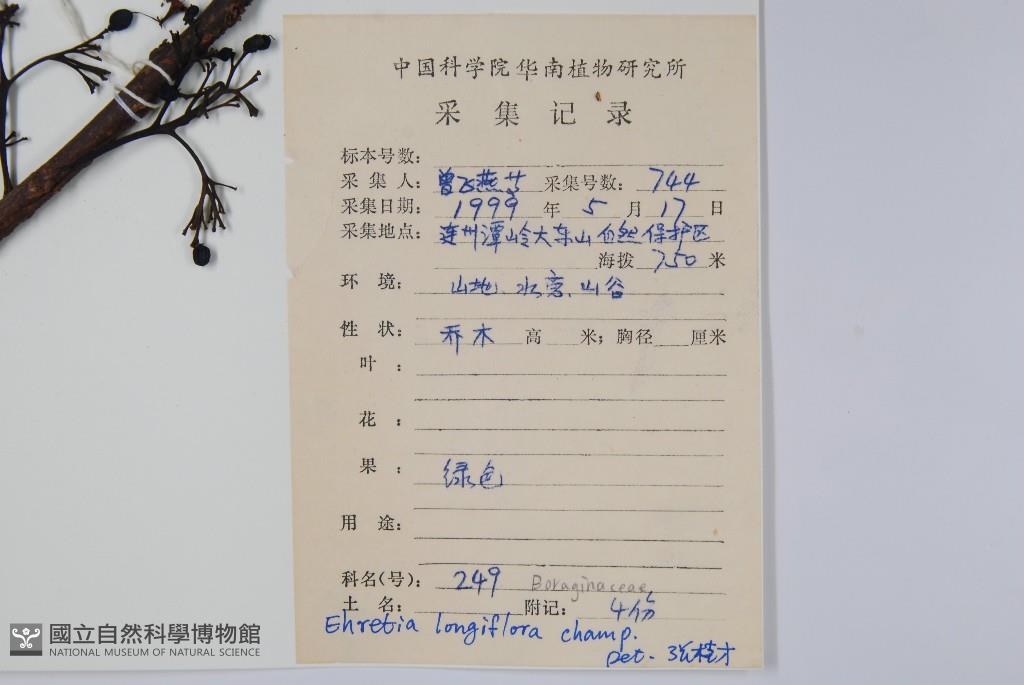 中国科学院华南植物研究所
采集记录
标本号数:
采集人: 曾飞燕等 采集号数: 744
采集日期: 1999 年 5 月 17 日
采集地点: 连州潭岭大东山自然保护区
海拨 750 米
环境: 山地、水旁、山谷
性状: 乔木 高 米; 胸径 厘米
叶:
花:
果: 绿色
用途:
科名(号): 249 Boraginaceae
土名: 附记: 4份
Ehretia longiflora champ.
Det. 张桂才
國立自然科學博物館
NATIONAL MUSEUM OF NATURAL SCIENCE